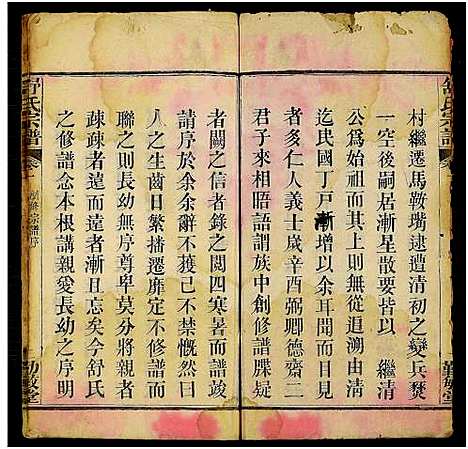 舒氏宗譜
村繼遷馬鞍嘴逮遭清初之變兵燹
一空後嗣居漸星散要皆以　繼清
公為始祖而其上則無從追溯由清
迄民國丁戶漸增以余耳聞而目見
者多仁人義士歲辛酉弼卿德齋二
君子來相晤語謂族中創修譜牒疑
勤敏堂
者闕之信者錄之閱四寒暑而譜竣
請序於余余辭不獲已不禁慨然曰
人之生齒日繁播遷靡定不修譜而
聯之則長幼無序尊卑莫分將親者
疎疎者遠而遠者漸且忘矣今舒氏
之修譜念本根講親愛長幼之序明
舒氏宗譜
創修宗譜序
勤敏堂